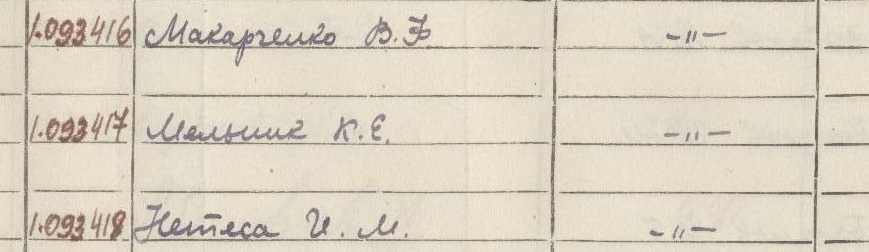 1.093416 Макарченко В.Ф. -〃-
1.093417 Мельник К.Е. -〃-
1.093418 Нетеса И.М. -〃-